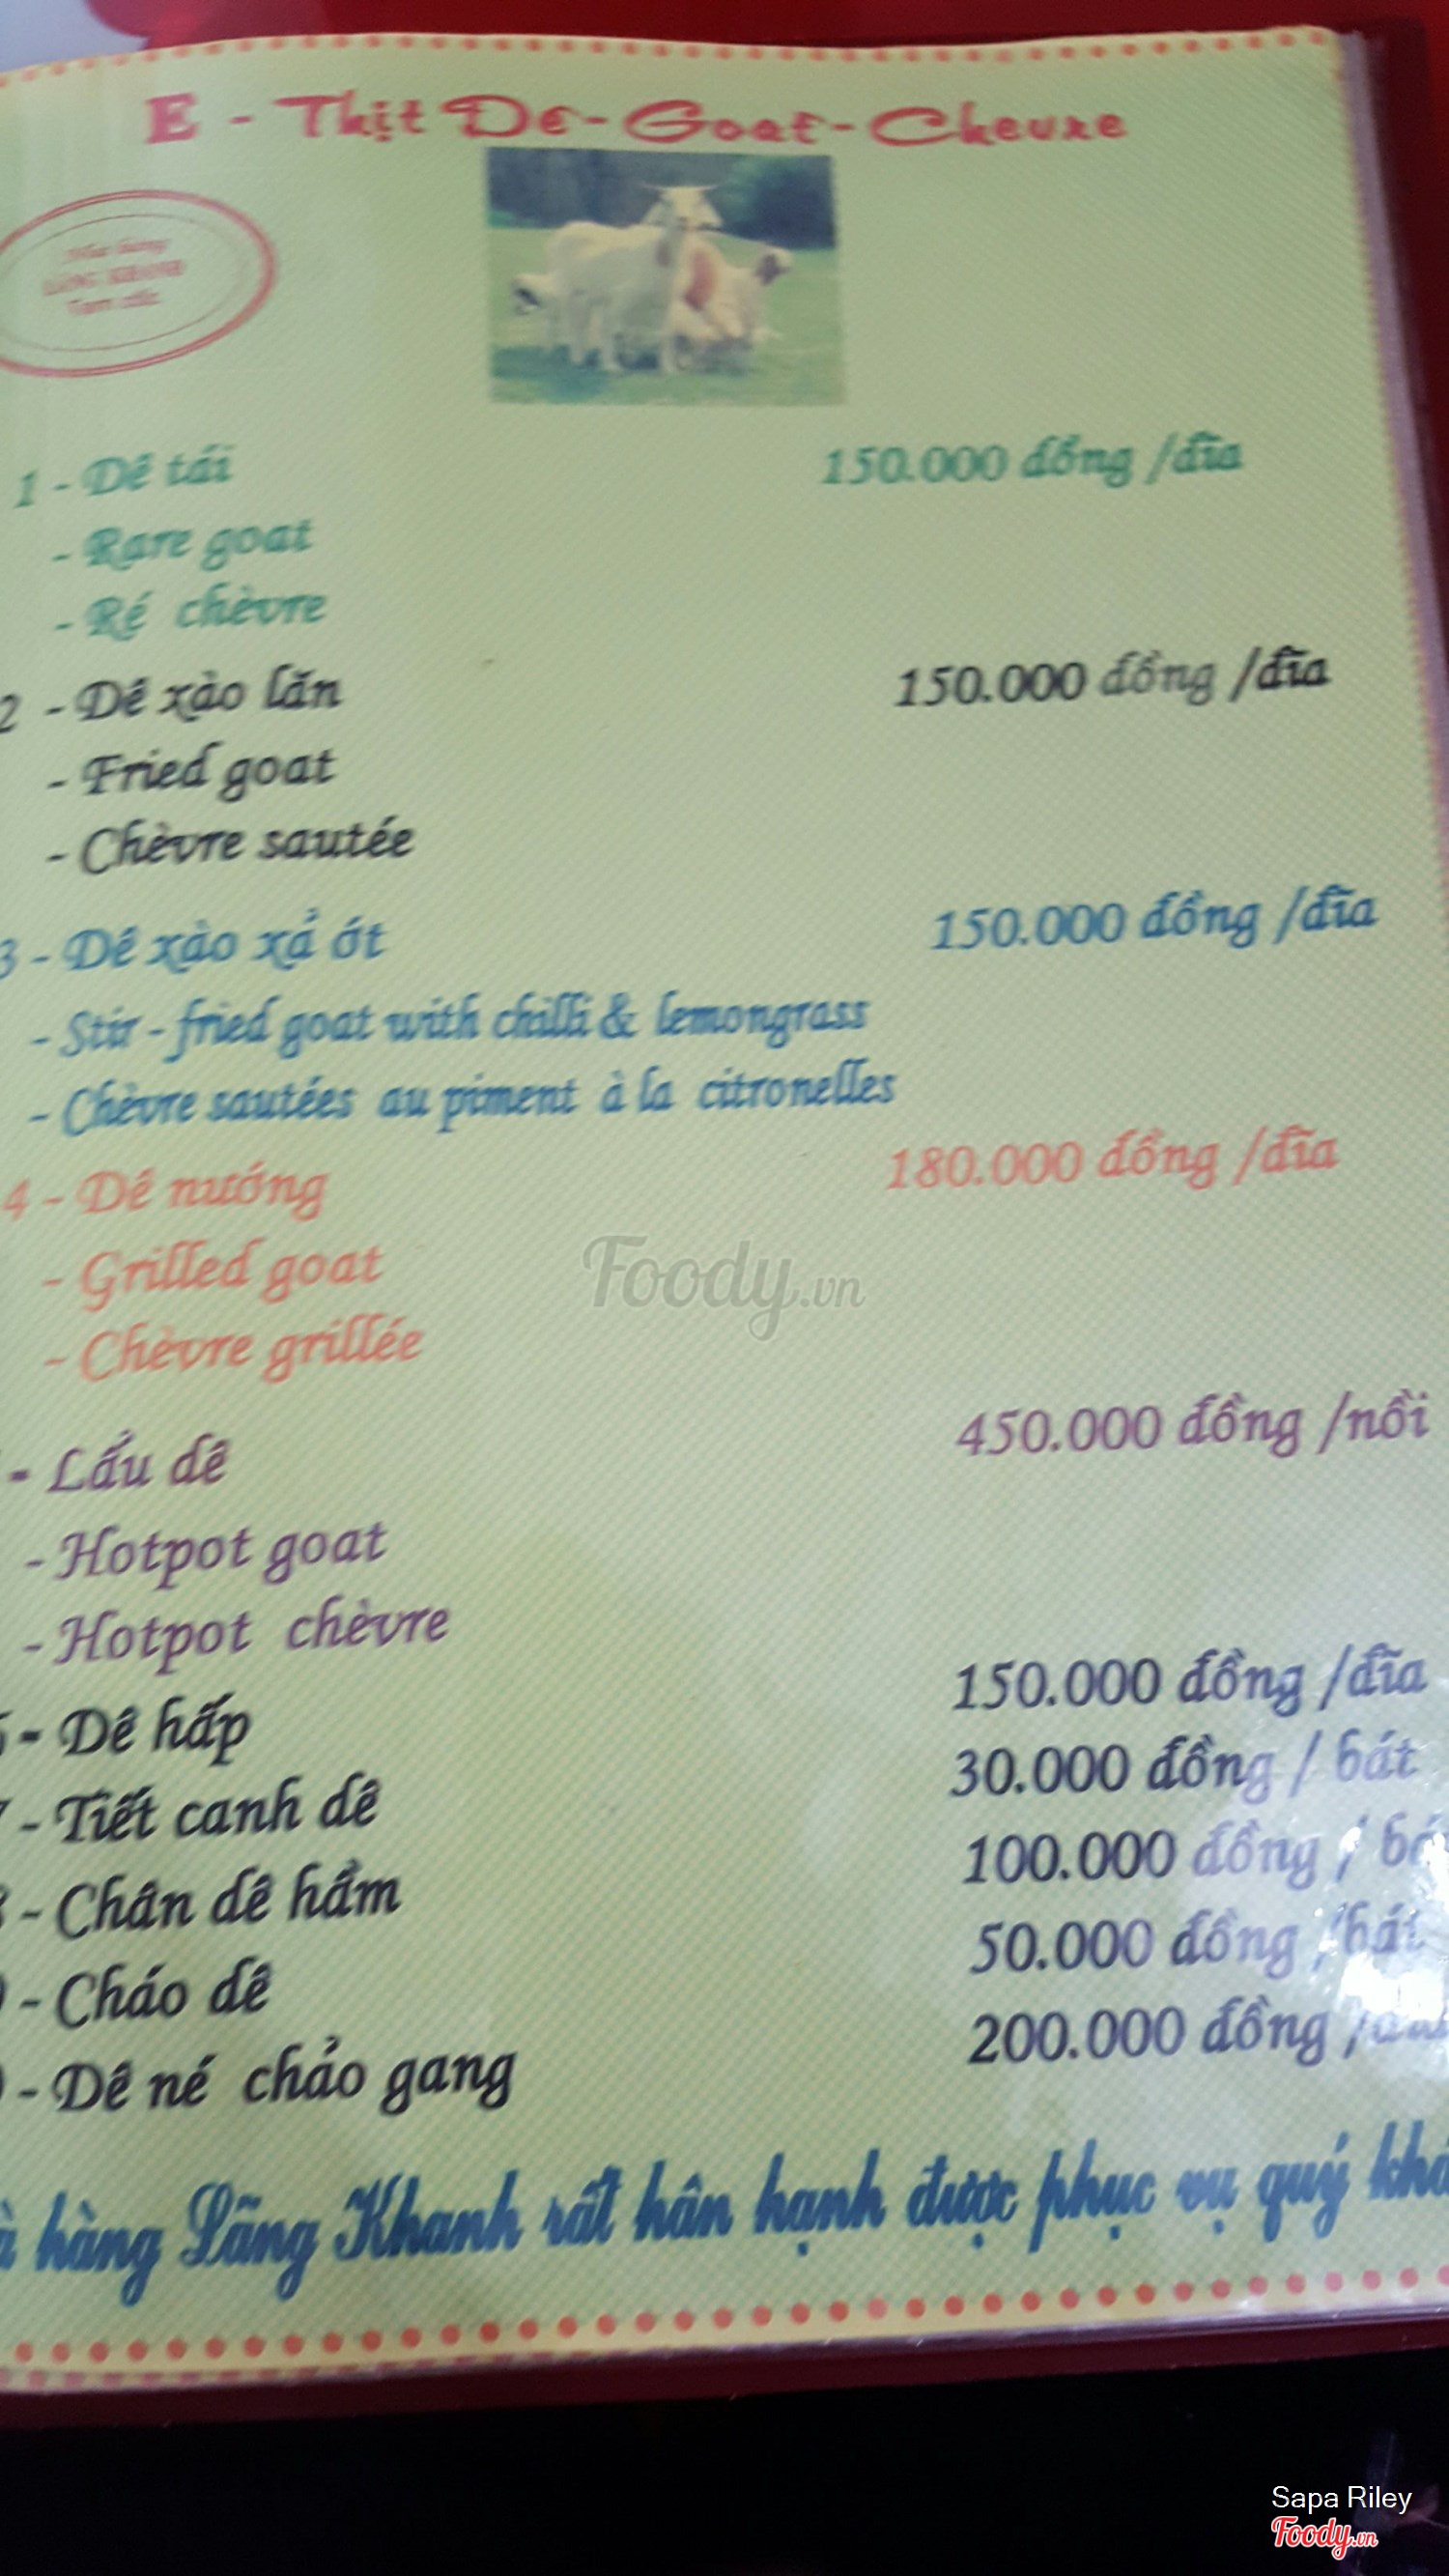 E - Thịt Dê - Goat - Chevre
Tam cốc
1 - Dê tái 150.000 đồng /đĩa
- Rare goat
- Ré chèvre
2 - Dê xào lăn 150.000 đồng /đĩa
- Fried goat
- Chèvre sautée
3 - Dê xào xả ớt 150.000 đồng /đĩa
- Stir - fried goat with chilli & lemongrass
- Chèvre sautées au piment à la citronelles
4 - Dê nướng 180.000 đồng /đĩa
- Grilled goat
- Chèvre grillée
Foody.vn
- Lẩu dê 450.000 đồng /nồi
- Hotpot goat
- Hotpot chèvre
- Dê hấp 150.000 đồng /đĩa
- Tiết canh dê 30.000 đồng / bát
- Chân dê hầm 100.000 đồng /
- Cháo dê 50.000 đồng /bát
- Dê né chảo gang 200.000 đồng /
hàng Lãng Khanh rất hân hạnh được phục vụ quý
Sapa Riley
Foody.vn